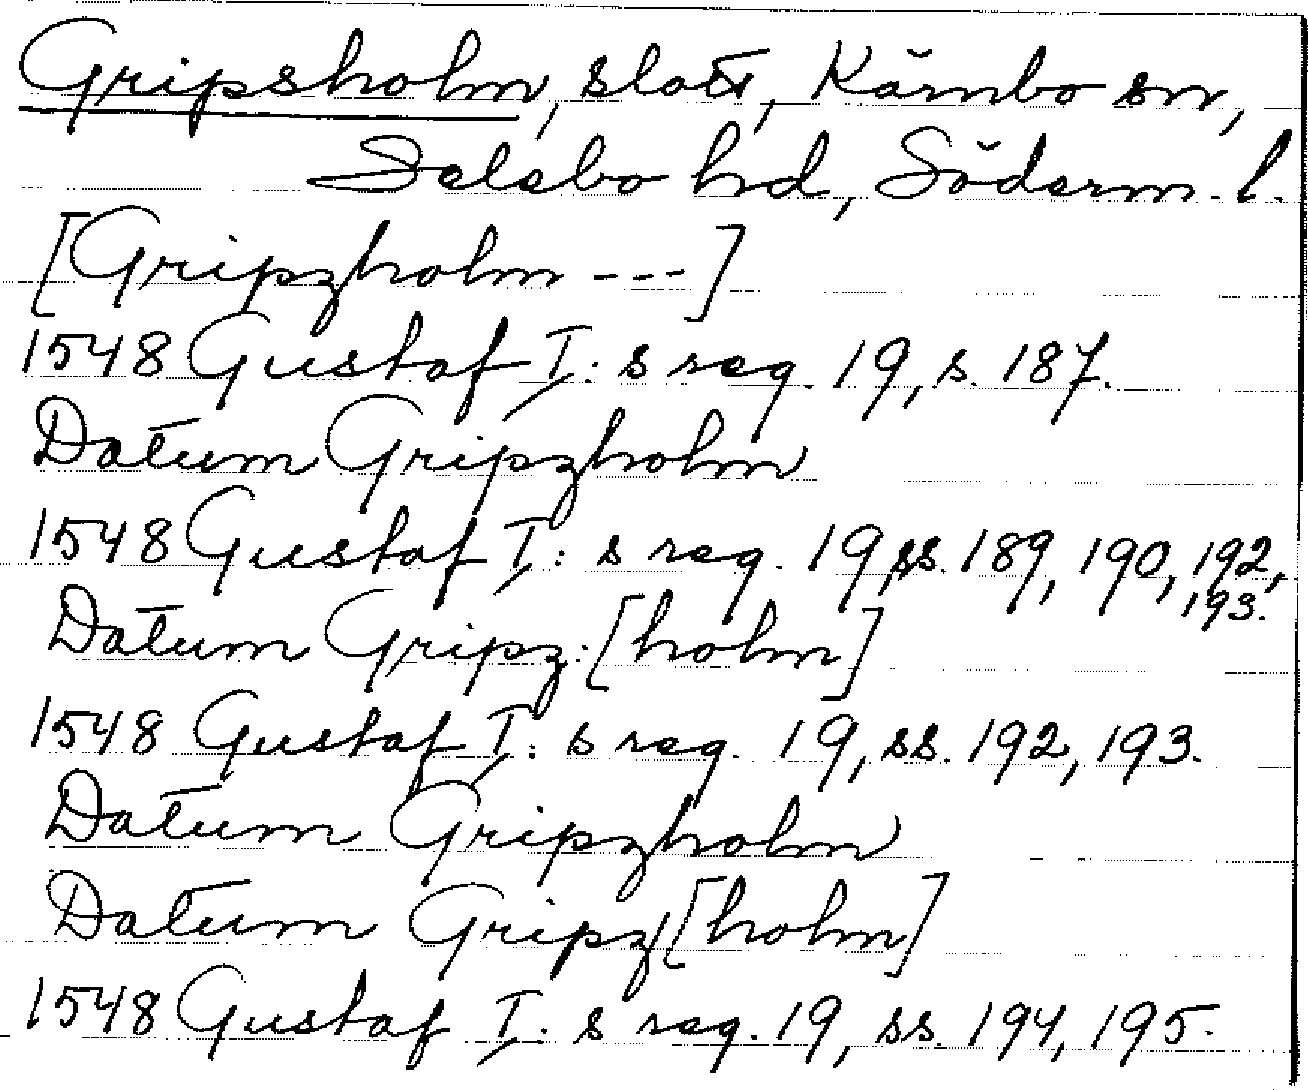 Gripsholm, slott, Kärnbo sn,
Selebo hd, Söderm. l.
[Gripzholm ---]
1548 Gustaf I: s reg. 19, s. 187.
Datum Gripzholm
1548 Gustaf I: s reg. 19, ss. 189, 190, 192,
193.
Datum Gripz:[holm]
1548 Gustaf I: s reg. 19, ss. 192, 193.
Datum Gripzholm
Datum Gripz[holm]
1548 Gustaf I: s reg. 19, ss. 194, 195.